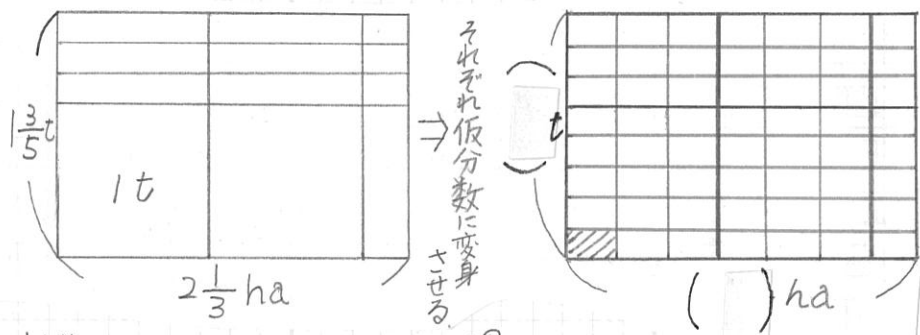 1 3/5 t
1t
2 1/3 ha
⇒
それぞれ仮分数に変身
させる。
( ) t
( ) ha